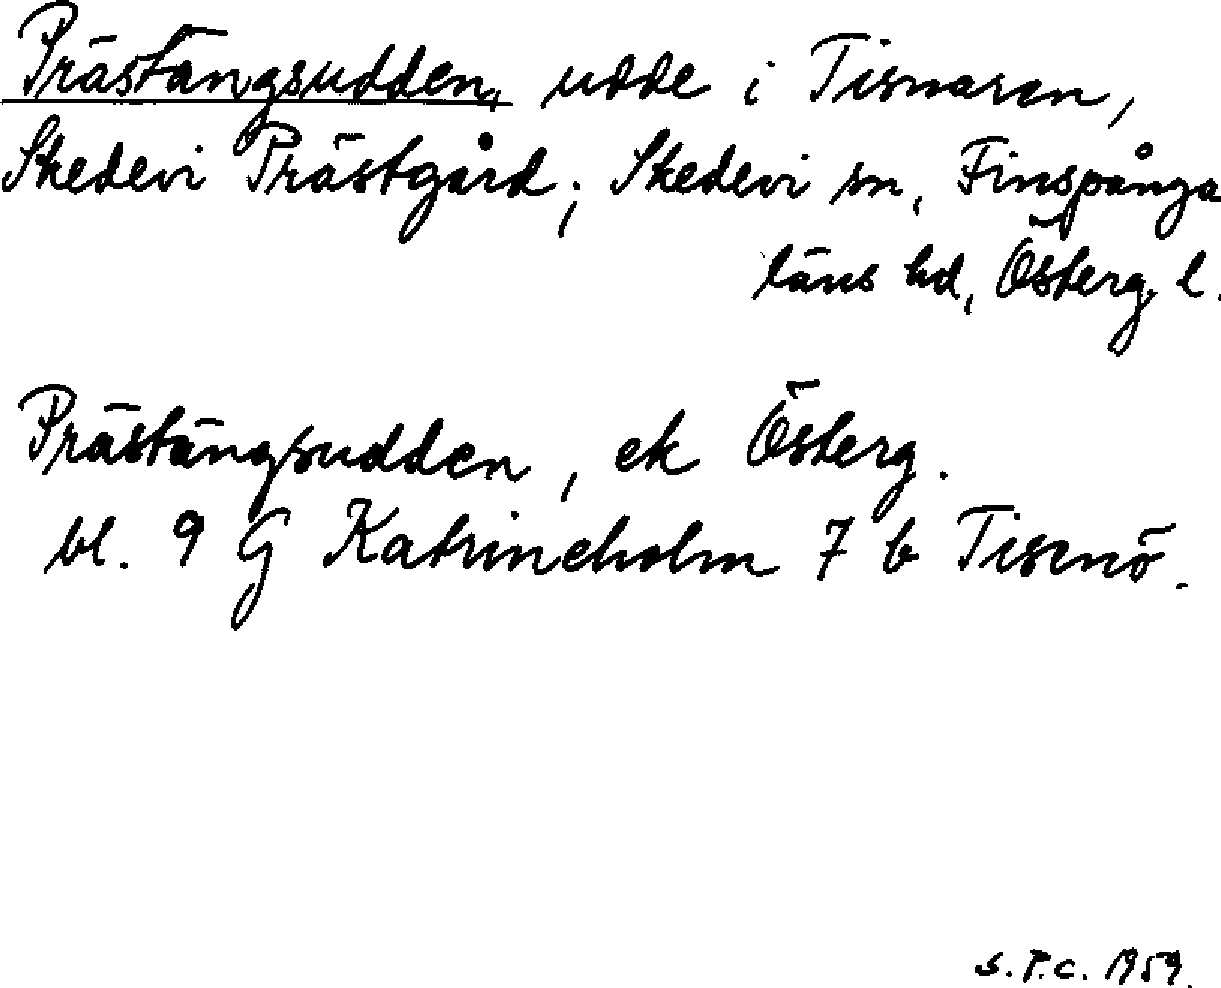 Prästängsudden, udde i Tisnaren,
Skedevi Prästgård; Skedevi sn, Finspånga
läns hd, Österg. l.
Prästängsudden, ek Österg.
bl. 9 G Katrineholm 7 b Tisenö.
S.P.C. 1959.